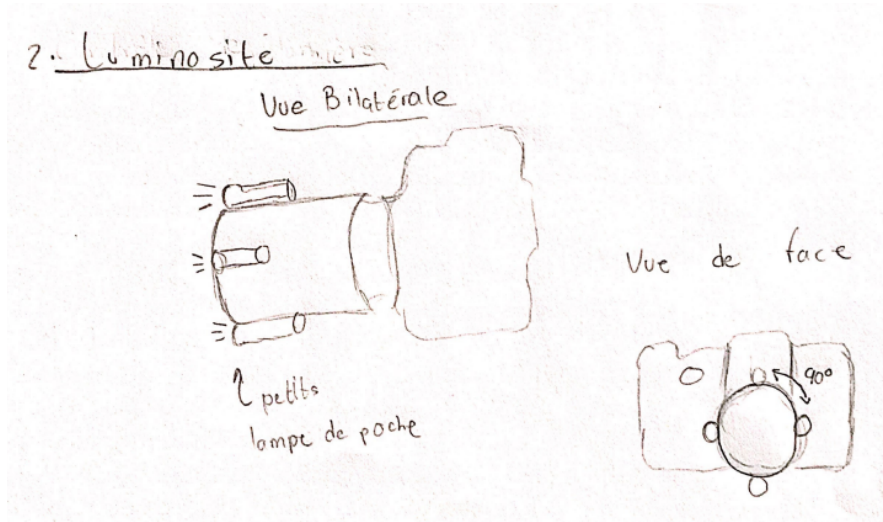 2. Luminosité
Vue Bilatérale
Vue de face
90°
petits
lampe de poche